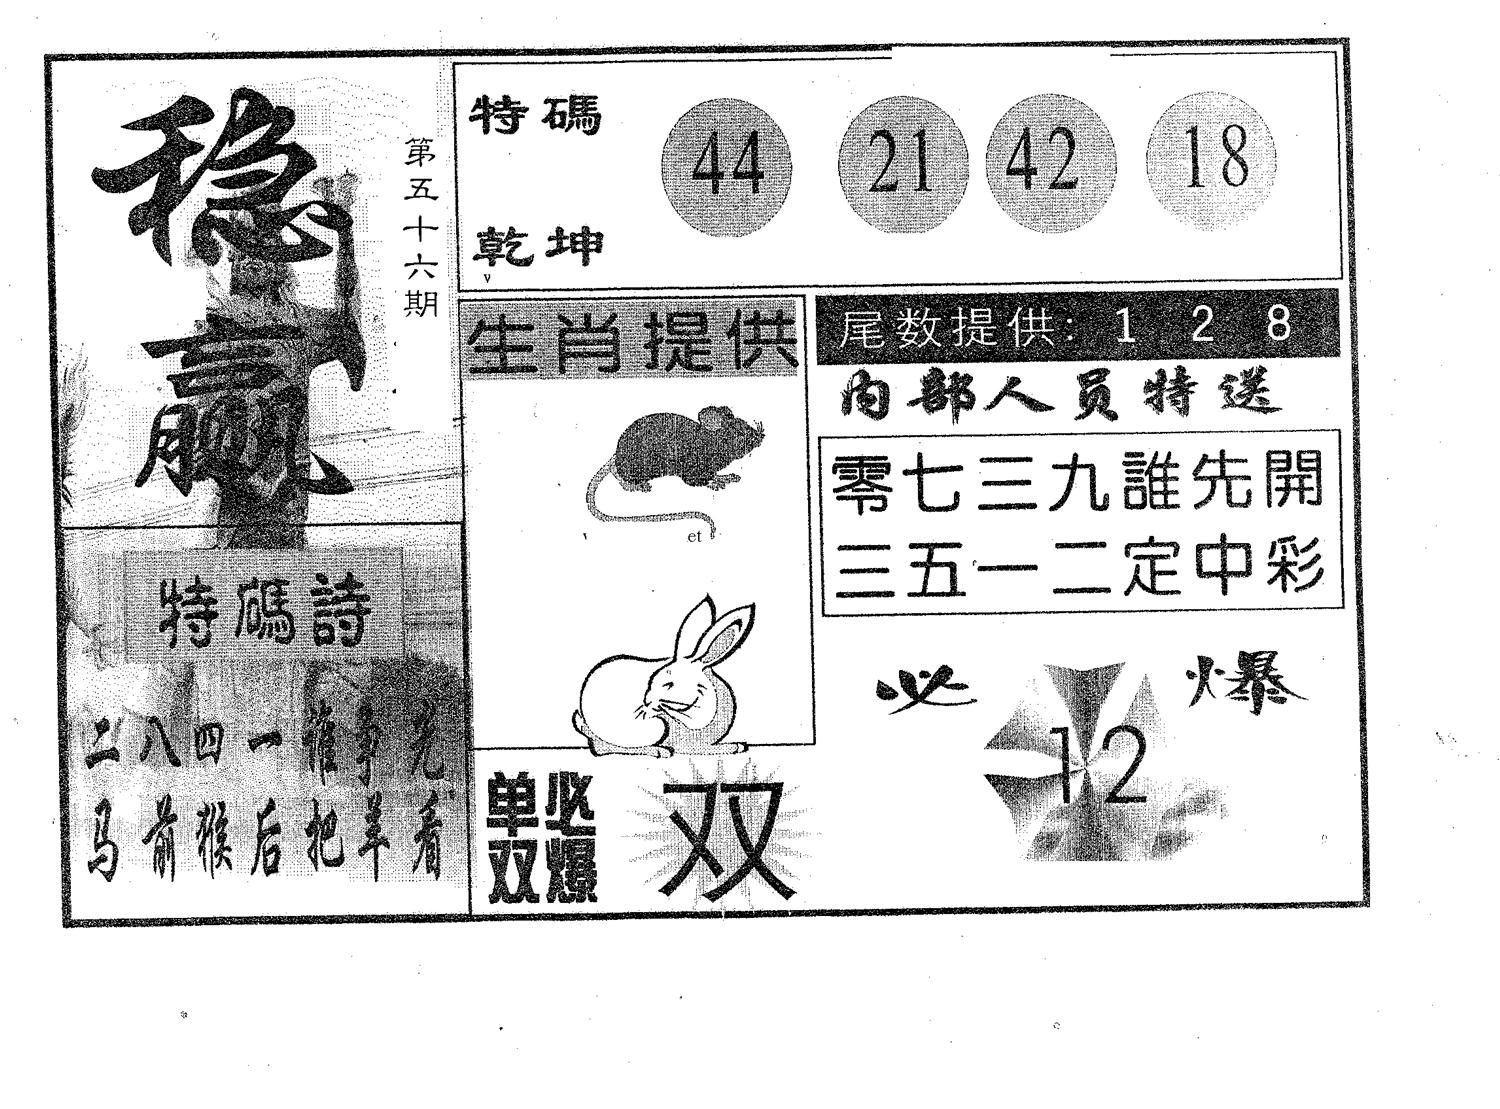 稳赢
第五十六期
特碼
乾坤
v
44 21 42 18
生肖提供
et
尾数提供: 1 2 8
内部人员特送
零七三九誰先開
三五一二定中彩
必爆
12
特碼詩
二八四一誰争先
马前猴后把羊看
单双
必爆
双